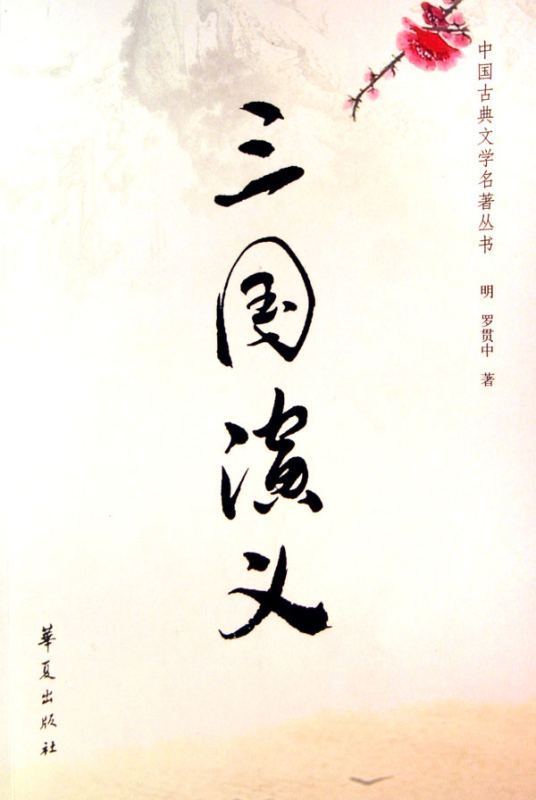 三国演义
中国古典文学名著丛书
明 罗贯中 著
華夏出版社